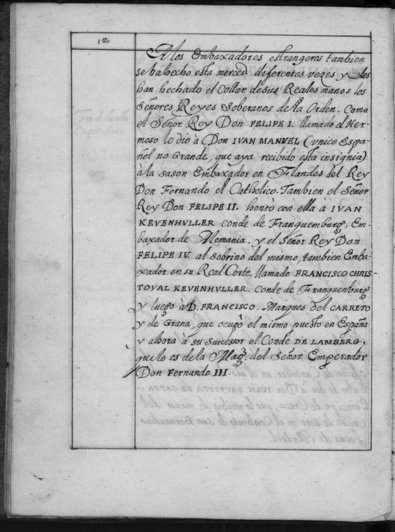 12.
A los Embaxadores estrangeros tambien
se ha hecho esta merced diferentes veçes, y
han hechado el Collar de sus Reales manos los
Señores Reyes Soberanos de la Orden. Como
el Señor Rey Don FELIPE I. llamado el Her-
moso lo dio à Don IVAN MANVEL (vnico Espa-
ñol no Grande, que aya recibido esta insignia)
à la sason Embaxador en Flandes del Rey
Don Fernando el Catholico. Tambien el Señor
Rey Don FELIPE II. honrò con ella à IVAN
KEVENHVLLER conde de Franquemburg, Em-
baxador de Alemania. y el Señor Rey Don
FELIPE IV. al Sobrino del mesmo, tambien Emba-
xador en su Real Corte, llamado FRANCISCO CHRIS-
TOVAL KEVENHVLLER. Conde de Franquenburg
y luego à D. FRANCISCO. Marques del CARRETO
y de Grana, que ocupò el mismo puesto en España
y ahora à su Sucesor el Conde DE LAMBERG,
que lo es de la Mag. del Señor Emperador
Don Fernando III.